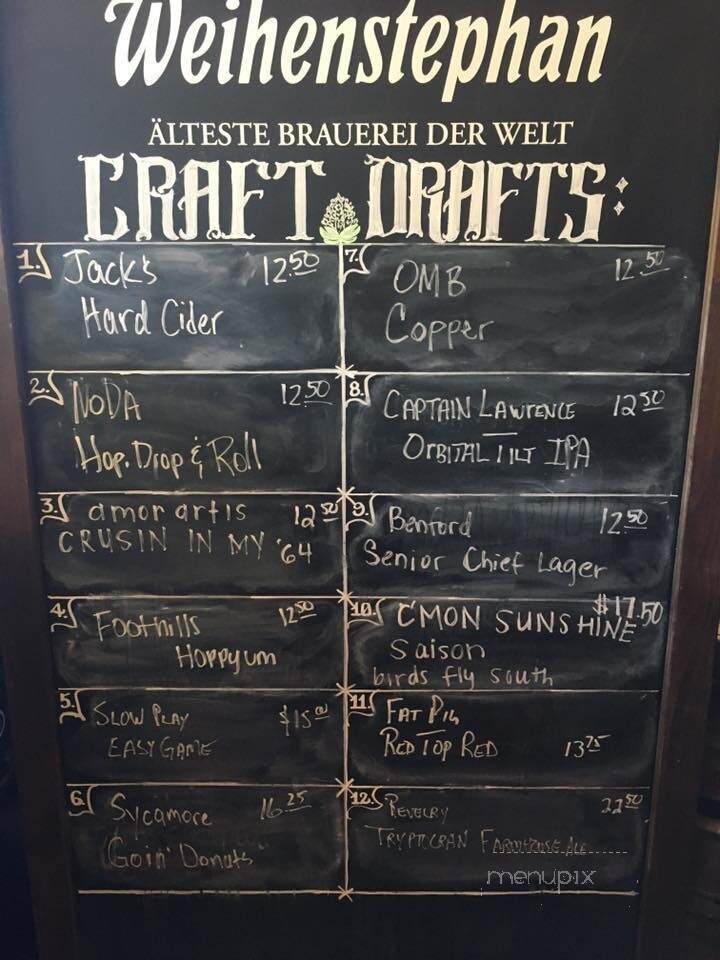 Weihenstephan
ÄLTESTE BRAUEREI DER WELT
CRAFT DRAFTS:
1. Jack's 12.50
Hard Cider
2. NODA 12.50
Hop. Drop & Roll
3. amor artis 12.50
CRUSIN IN MY '64
4. Foothills 12.50
Hoppyum
5. SLOW PLAY $15.00
EASY GAME
6. Sycamore 16.25
Goin' Donuts
7. OMB 12.50
Copper
8. CAPTAIN LAWRENCE 12.50
ORBITAL TILT IPA
9. Benford 12.50
Senior Chief Lager
10. C'MON SUNSHINE $17.50
Saison
birds fly south
11. FAT PIG
RED TOP RED 13.75
12. REVELRY 22.50
FARMHOUSE ALE
menupix